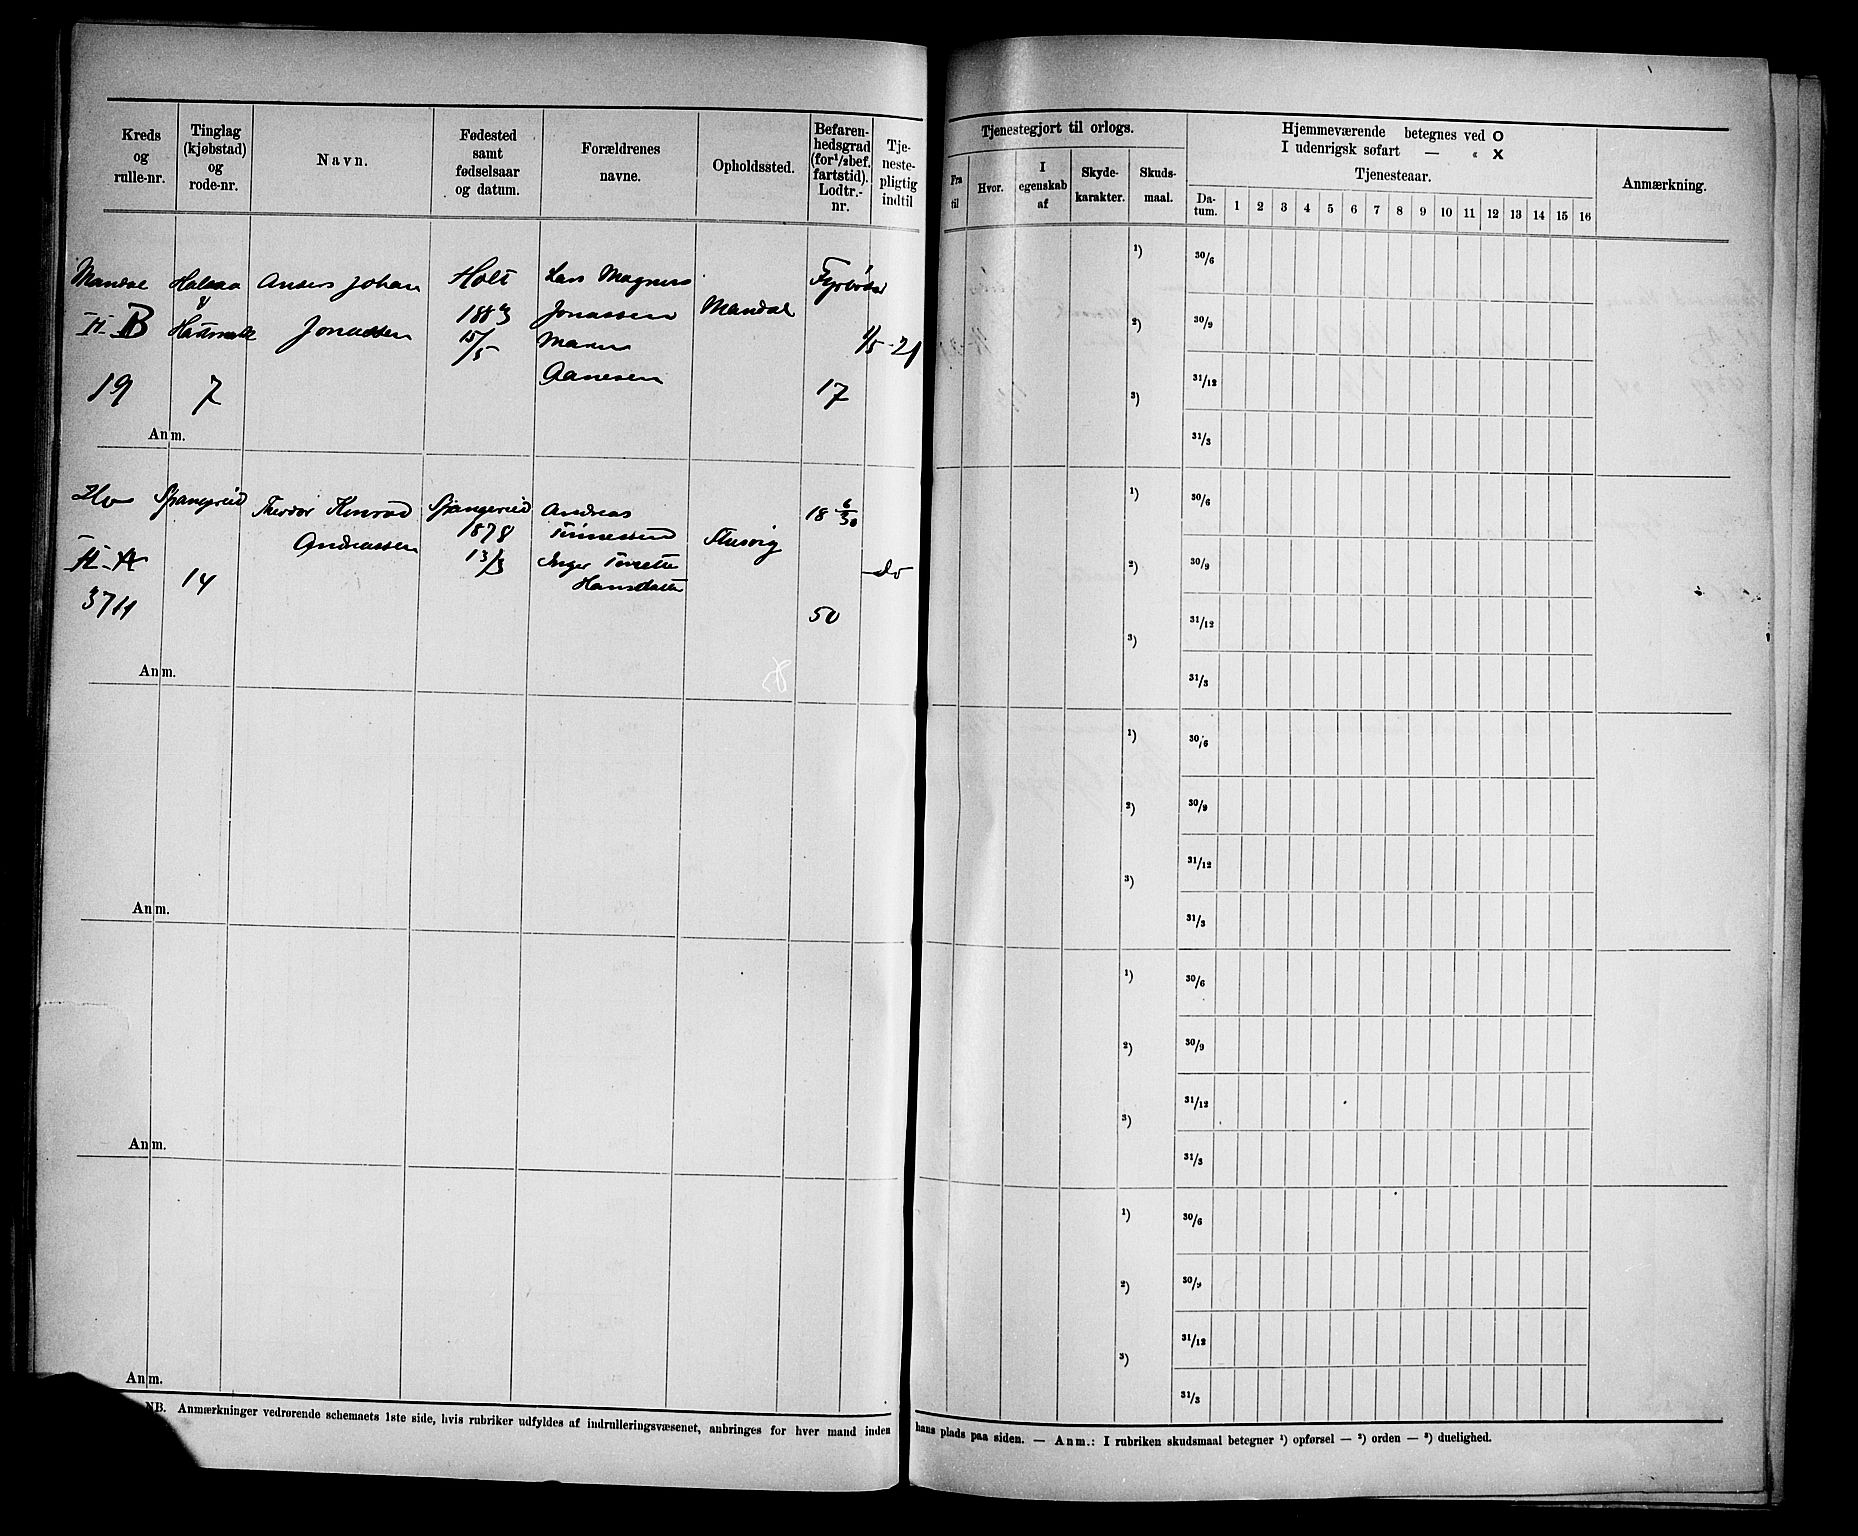 Kreds og rulle-nr.
Tinglag (kjøbstad) og rode-nr.
Navn.
Fødested samt fødselsaar og datum.
Forældrenes navne.
Opholdssted.
Befaren-hedsgrad (for 1/2 bef. fartstid). Lodtr.-nr.
Tje-neste-pligtig indtil
Tjenestegjort til orlogs.
Fra til
Hvor.
I egenskab af
Skyde-karakter.
Skuds-maal.
Hjemmeværende betegnes ved O
I udenrigsk søfart — " X
Tjenesteaar.
Da-tum. 1 2 3 4 5 6 7 8 9 10 11 12 13 14 15 16
Anmærkning.
Mandal
II B
19
Halsaa
&
7
Anders Johan
Jonassen
Holt
1883
15/5
Lars Magnus
Jonassen
Maren
Aanesen
Mandal
Fyrbøder
17
1/5 - 21
Anm.
1) 30/6
2) 30/9
3) 31/12
31/3
Do
II A
3711
Spangereid
14
Theodor Konrad
Andreassen
Spangereid
1878
13/3
Andreas
Tønnessen
Inger
Hansdatter
18 6/30
50
Do
Anm.
1) 30/6
2) 30/9
3) 31/12
31/3
Anm.
1) 30/6
2) 30/9
3) 31/12
31/3
Anm.
1) 30/6
2) 30/9
3) 31/12
31/3
Anm.
1) 30/6
2) 30/9
3) 31/12
31/3
NB. Anmærkninger vedrørende schemaets 1ste side, hvis rubriker udfyldes af indrulleringsvæsenet, anbringes for hver mand inden hans plads paa siden. — Anm.: I rubriken skudsmaal betegner 1) opførsel — 2) orden — 3) duelighed.